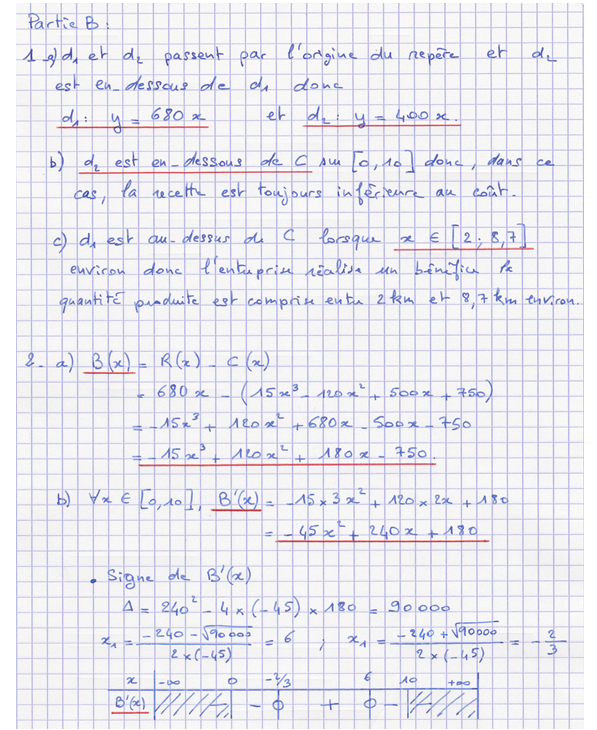 Partie B :
1-a) d₁ et d₂ passent par l'origine du repère et d₂
est en-dessous de d₁ donc
d₁: y = 680x et d₂: y = 400x.
b) d₂ est en-dessous de C sur [0,10] donc, dans ce
cas, la recette est toujours inférieure au coût.
c) d₁ est au-dessus de C lorsque x ∈ [2; 8,7]
environ donc l'entreprise réalise un bénéfice la
quantité produite est comprise entre 2 km et 8,7 km environ.
2- a) B(x) = R(x) - C(x)
= 680x - (15x³ - 120x² + 500x + 750)
= -15x³ + 120x² + 680x - 500x - 750
= -15x³ + 120x² + 180x - 750.
b) ∀x ∈ [0,10], B'(x) = -15×3x² + 120×2x + 180
= -45x² + 240x + 180
• Signe de B'(x)
Δ = 240² - 4×(-45)×180 = 90000
x₁ = (-240 - √90000)/(2×(-45)) = 6 ; x₁ = (-240 + √90000)/(2×(-45)) = -2/3
x -∞ 0 -2/3 6 10 +∞
B'(x) - 0 + 0 -